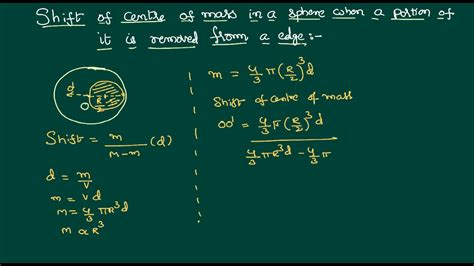 Shift of centre of mass in a sphere when a portion of
it is removed from a edge:-
d
R/2
O
Shift = m/(M-m) (d)
d = m/v
m = v d
m = 4/3 πR³d
m ∝ R³
m = 4/3 π(R/2)³d
Shift of centre of mass
OO' = 4/3 π(R/2)³d
4/3 πR³d - 4/3 π